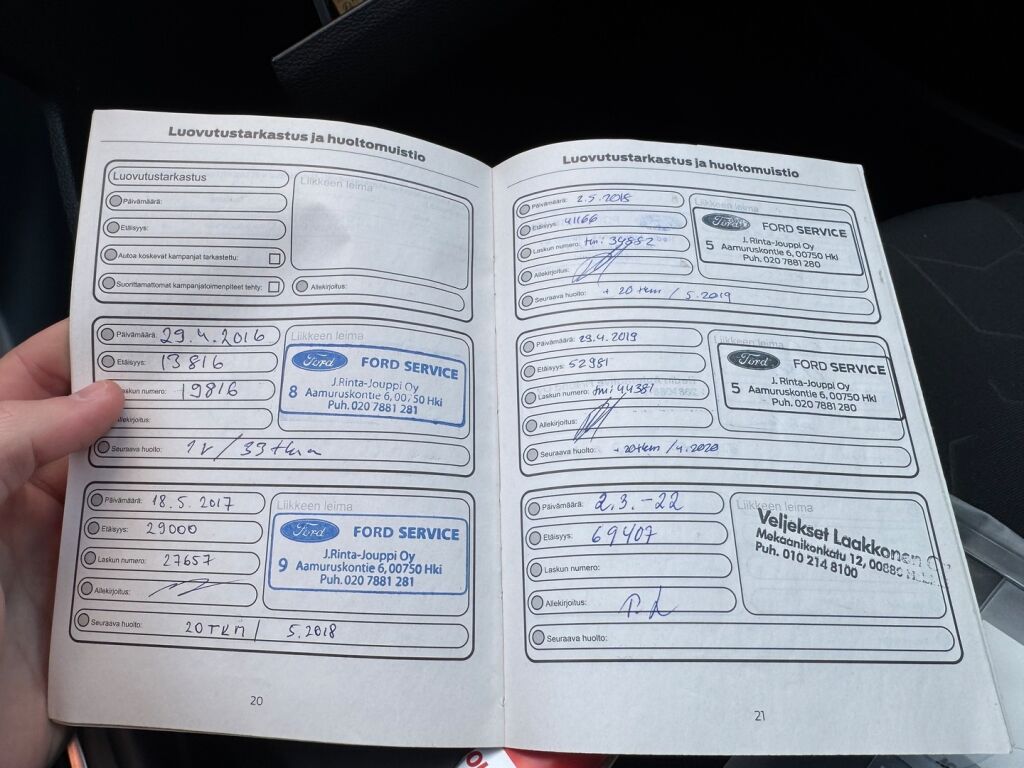 Luovutustarkastus ja huoltomuistio
Luovutustarkastus
Liikkeen leima
Päivämäärä:
Etäisyys:
Autoa koskevat kampanjat tarkastettu:
Suorittamattomat kampanjatoimenpiteet tehty:
Allekirjoitus:
Päivämäärä: 29.4.2016
Etäisyys: 13816
Laskun numero: 19816
Allekirjoitus:
Seuraava huolto: 1v / 33 tkm
Liikkeen leima
Ford FORD SERVICE
8 J.Rinta-Jouppi Oy
Aamuruskontie 6, 00750 Hki
Puh. 020 7881 281
Päivämäärä: 18.5.2017
Etäisyys: 29000
Laskun numero: 27657
Allekirjoitus:
Seuraava huolto: 20 TKM / 5.2018
Liikkeen leima
Ford FORD SERVICE
9 J.Rinta-Jouppi Oy
Aamuruskontie 6, 00750 Hki
Puh. 020 7881 281
20
Luovutustarkastus ja huoltomuistio
Päivämäärä: 2.5.2018
Etäisyys: 41166
Laskun numero: tm: 34552
Allekirjoitus:
Seuraava huolto: + 20 tkm / 5.2019
Liikkeen leima
Ford FORD SERVICE
5 J.Rinta-Jouppi Oy
Aamuruskontie 6, 00750 Hki
Puh. 020 7881 280
Päivämäärä: 29.4.2019
Etäisyys: 52981
Laskun numero: tm: 44381
Allekirjoitus:
Seuraava huolto: +20tkm /4.2020
Liikkeen leima
Ford FORD SERVICE
5 J.Rinta-Jouppi Oy
Aamuruskontie 6, 00750 Hki
Puh. 020 7881 280
Päivämäärä: 2.3.-22
Etäisyys: 69407
Laskun numero:
Allekirjoitus:
Seuraava huolto:
Liikkeen leima
Veljekset Laakkonen
Mekaanikonkatu 12, 00880
Puh. 010 214 8100
21